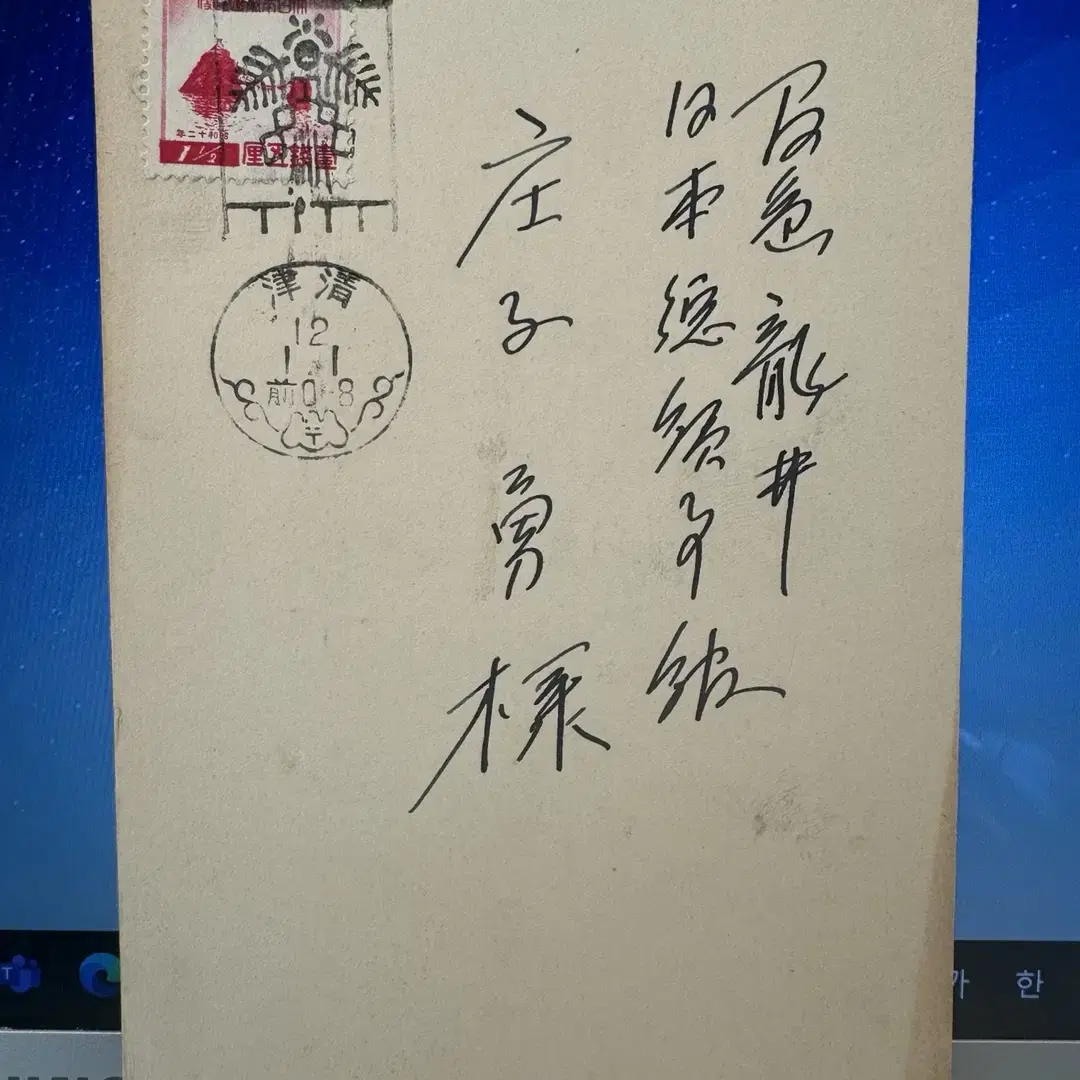 間島 龍井
日本總領事館
庄子勇様
昭和十二年
1½ 壹錢五厘
清津
12
1.1
前0-8
〒
가 한